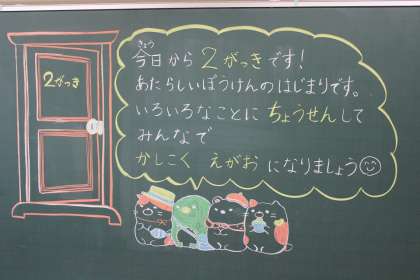 2がっき
きょう
今日から2がっきです!
あたらしいぼうけんのはじまりです。
いろいろなことにちょうせんして
みんなで
かしこく えがおになりましょう